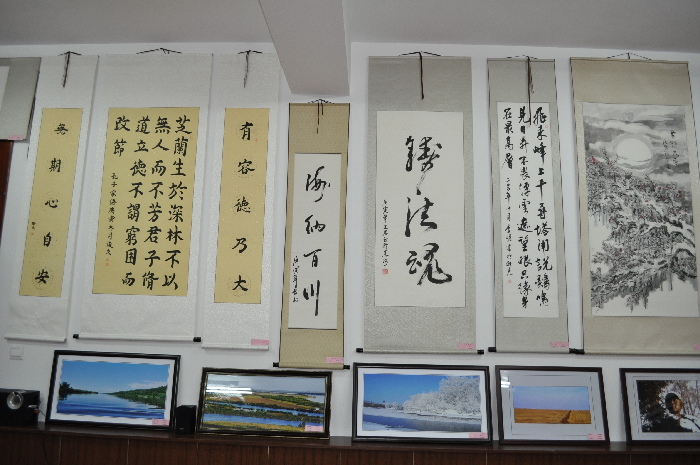 有容德乃大
芝蘭生於深林不以
無人而不芳君子脩
道立德不謂窮困而
改節
無期心自安
海納百川
鑄法魂
飛來峰上千尋塔聞說雞鳴
見日升不畏浮雲遮望眼只緣身
在最高層